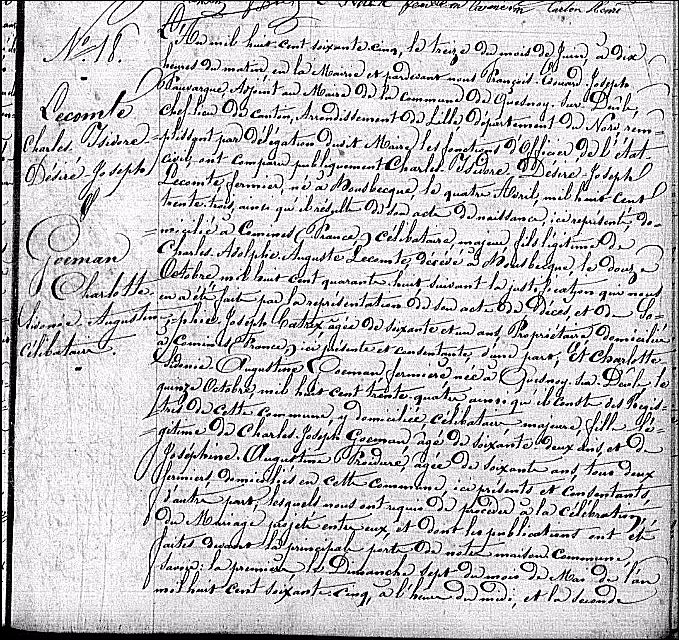 N.° 18.
Lecomte
Charles Isidore
Désiré Joseph
&
Goeman
Charlotte
Sidonie Augustine
célibataire.
L'An mil huit cent soixante cinq, le treize du mois de Juin, à dix
heures du matin, en la Mairie et pardevant nous François Edouard Joseph
Adjoint au Maire de la commune de Quesnoy-sur-Deûle,
chef-lieu de canton, Arrondissement de Lille, département du Nord, rem-
plissant par délégation dudit Maire les fonctions d'officier de l'état
civil, ont comparu publiquement Charles Isidore Désiré Joseph
Lecomte, fermier, né à Bousbecque, le quatre Avril, mil huit cent
trente trois, ainsi qu'il résulte de son acte de naissance, ici représenté, do-
micilié à Comines (France) célibataire, majeur, fils légitime de
Charles Adolphe Auguste Lecomte, décédé à Bousbecque, le douze
Octobre mil huit cent quarante huit suivant la justification qui nous
en a été faite par la représentation de son acte de Décès, et de So-
phie Joseph Catrix âgée de soixante et un ans, Propriétaire domiciliée
à Comines (France) ici présente et consentante, d'une part, Et Charlotte
Sidonie Augustine Goeman fermière, née à Quesnoy-sur-Deûle le
quinze Octobre, mil huit cent trente quatre ainsi qu'il conste des Regis-
tres de cette commune, y domiciliée, célibataire majeure, fille lé-
gitime de Charles Joseph Goeman, âgé de soixante deux ans, et de
Joséphine Augustine âgée de soixante ans, tous deux
fermiers, domiciliés en cette commune, ici présents et consentants,
d'autre part, lesquels nous ont requis de procéder à la célébration
du Mariage projeté entre eux, et dont les publications ont été
faites devant la principale porte de notre maison commune,
savoir: la première le Dimanche sept du mois de Mai de l'an
mil huit cent soixante cinq, à l'heure de midi, et la seconde